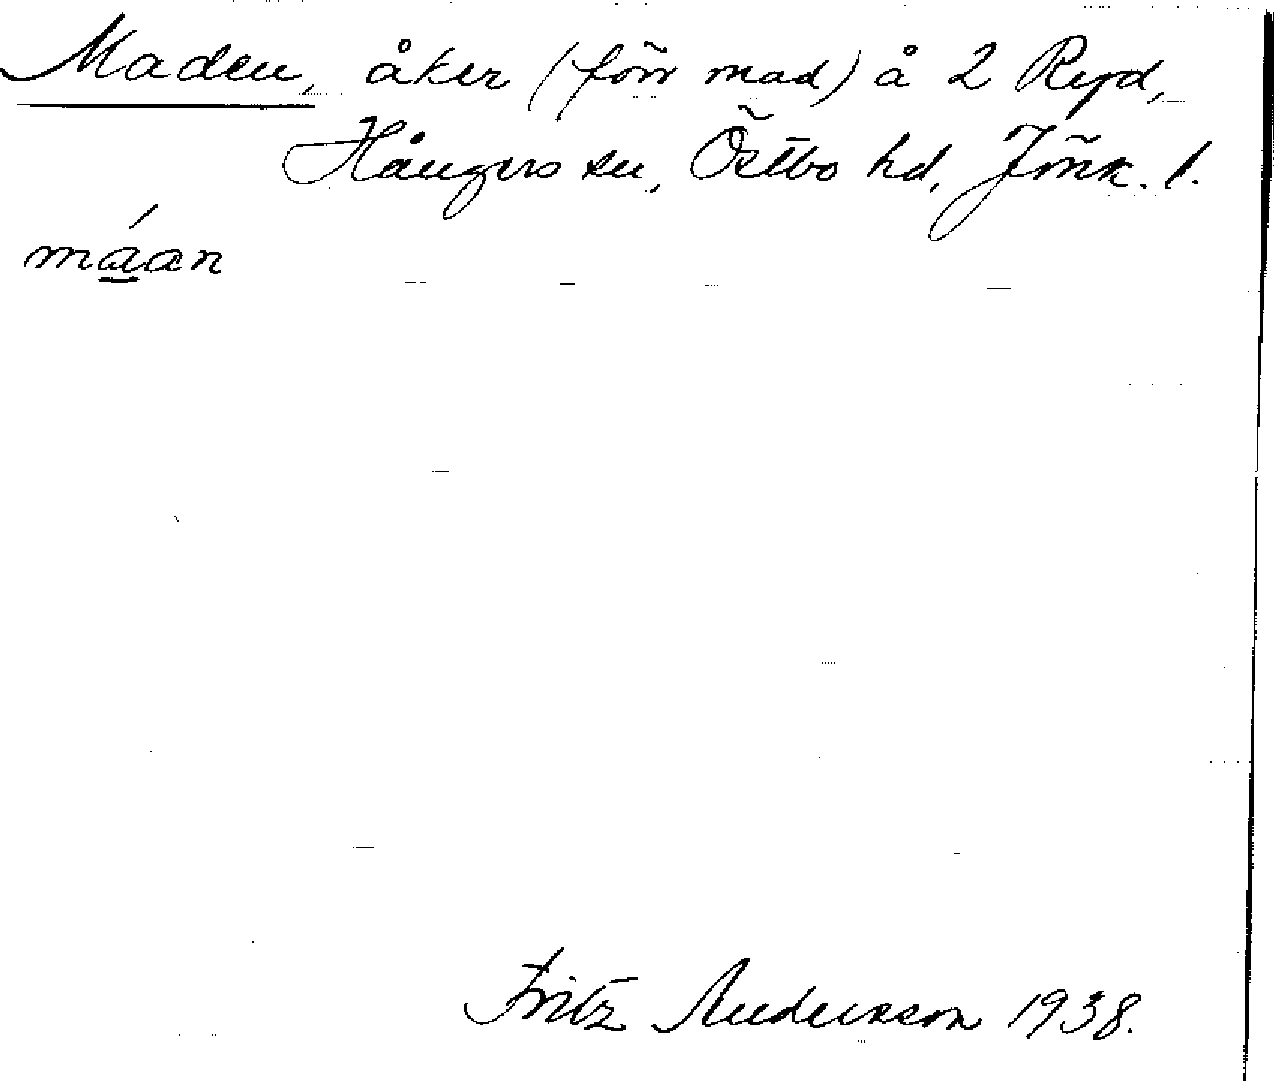 Maden, åker (förr mad) å 2 Ryd,
Hångers sn, Östbo hd, Jönk. l.
máan
Fritz Andersson 1938.